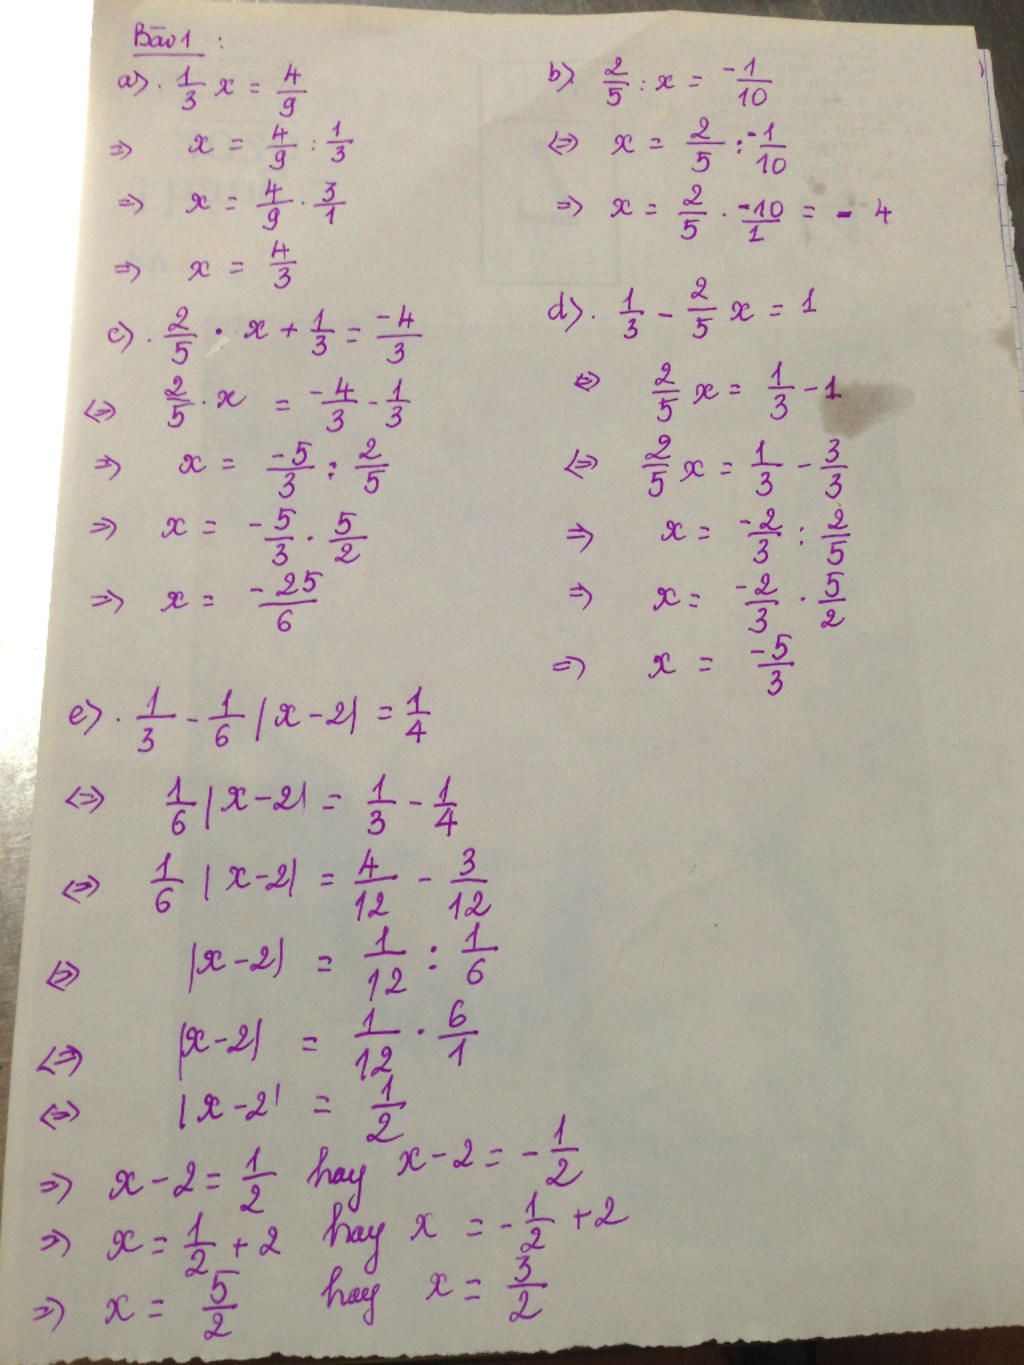 Bài 1 :
a) . 1/3 x = 4/9
=> x = 4/9 : 1/3
=> x = 4/9 . 3/1
=> x = 4/3
b) 2/5 : x = -1/10
<=> x = 2/5 : -1/10
=> x = 2/5 . -10/1 = - 4
c) . 2/5 . x + 1/3 = -4/3
<=> 2/5 . x = -4/3 - 1/3
=> x = -5/3 : 2/5
=> x = -5/3 . 5/2
=> x = -25/6
d) . 1/3 - 2/5 x = 1
<=> 2/5 x = 1/3 - 1
<=> 2/5 x = 1/3 - 3/3
=> x = -2/3 : 2/5
=> x = -2/3 . 5/2
=> x = -5/3
e) . 1/3 - 1/6 |x-2| = 1/4
<=> 1/6 |x-2| = 1/3 - 1/4
<=> 1/6 |x-2| = 4/12 - 3/12
<=> |x-2| = 1/12 : 1/6
<=> |x-2| = 1/12 . 6/1
<=> |x-2| = 1/2
=> x-2 = 1/2 hay x-2 = -1/2
=> x = 1/2 + 2 hay x = -1/2 + 2
=> x = 5/2 hay x = 3/2